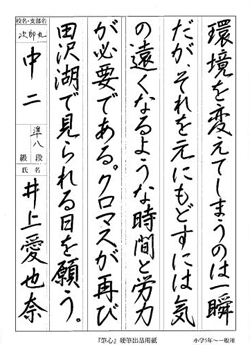 環境を変えてしまうのは一瞬
だが、それを元にもどすには気
の遠くなるような時間と労力
が必要である。クロマスが再び
田沢湖で見られる日を願う。
校名・支部名
次郎丸
中二
準八段
級
氏名
井上愛也奈
『筆心』硬筆出品用紙
小学5年~一般用